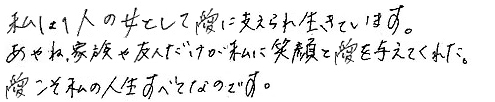 私は1人の女として愛に支えられ生きています。
あやね、家族や友人だけが私に笑顔と愛を与えてくれた。
愛こそ私の人生すべてなのです。